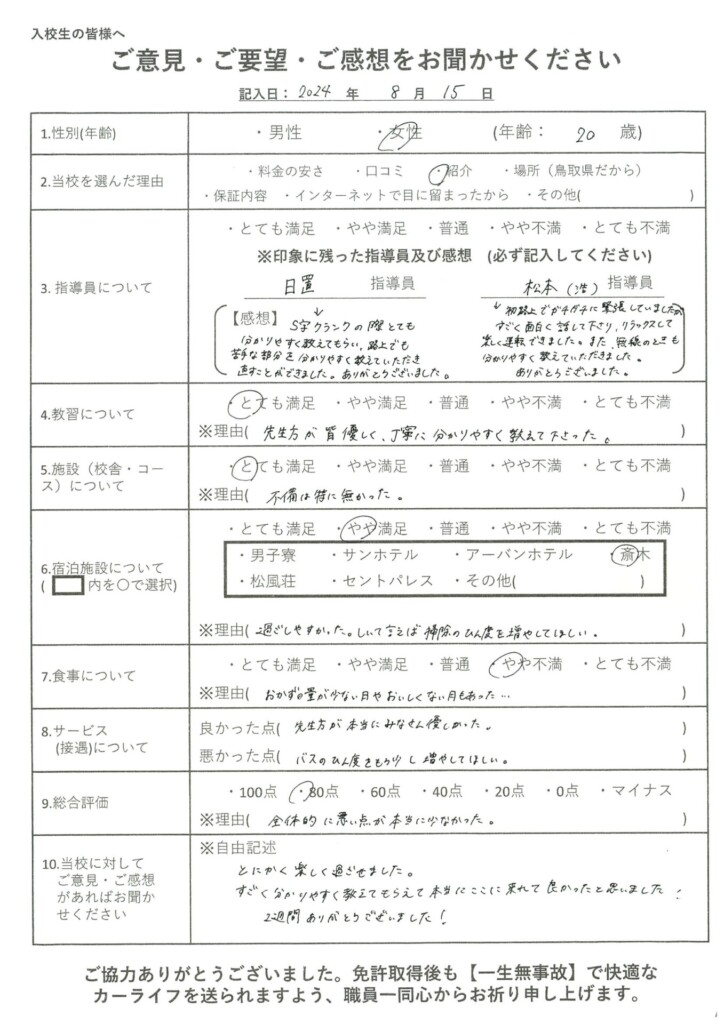 入校生の皆様へ
ご意見・ご要望・ご感想をお聞かせください
記入日：2024 年 8 月 15 日
1.性別(年齢) ・男性 ・女性 (年齢： 20 歳)
2.当校を選んだ理由
・料金の安さ ・口コミ ・紹介 ・場所（鳥取県だから）
・保証内容 ・インターネットで目に留まったから ・その他( )
3. 指導員について
・とても満足 ・やや満足 ・普通 ・やや不満 ・とても不満
※印象に残った指導員及び感想 (必ず記入してください)
日置 指導員
松本（浩） 指導員
【感想】 S字クランクの際とても
分かりやすく教えてもらい、路上でも
苦手な部分を分かりやすく教えていただき
直すことができました。ありがとうございました。
初路上でガチガチに緊張していましたが
すごく面白く話して下さり、リラックスして
楽しく運転できました。また、無線のときも
分かりやすく教えていただきました。
ありがとうございました。
4.教習について
・とても満足 ・やや満足 ・普通 ・やや不満 ・とても不満
※理由( 先生方が皆優しく、丁寧に分かりやすく教えて下さった。 )
5.施設（校舎・コー
ス）について
・とても満足 ・やや満足 ・普通 ・やや不満 ・とても不満
※理由( 不備は特に無かった。 )
6.宿泊施設について
( 内を〇で選択)
・とても満足 ・やや満足 ・普通 ・やや不満 ・とても不満
・男子寮 ・サンホテル ・アーバンホテル ・斎木
・松風荘 ・セントパレス ・その他( )
※理由( 過ごしやすかった。しいて言えば掃除のひん度を増やしてほしい。 )
7.食事について
・とても満足 ・やや満足 ・普通 ・やや不満 ・とても不満
※理由( おかずの量が少ない日やおいしくない日もあった… )
8.サービス
(接遇)について
良かった点( 先生方が本当にみなさん優しかった。 )
悪かった点( バスのひん度をもう少し増やしてほしい。 )
9.総合評価
・100点 ・80点 ・60点 ・40点 ・20点 ・0点 ・マイナス
※理由( 全体的に悪い点が本当に少なかった。 )
10.当校に対して
ご意見・ご感想
があればお聞か
せください
※自由記述
とにかく楽しく過ごせました。
すごく分かりやすく教えてもらえて本当にここに来れて良かったと思いました！
2週間ありがとうございました！
ご協力ありがとうございました。免許取得後も【一生無事故】で快適な
カーライフを送られますよう、職員一同心からお祈り申し上げます。